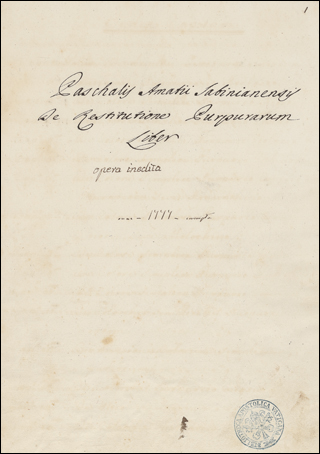 1
Paschalis Amatii Sabinianensis
De Restitutione Purpurarum
Liber
opera inedita
1777